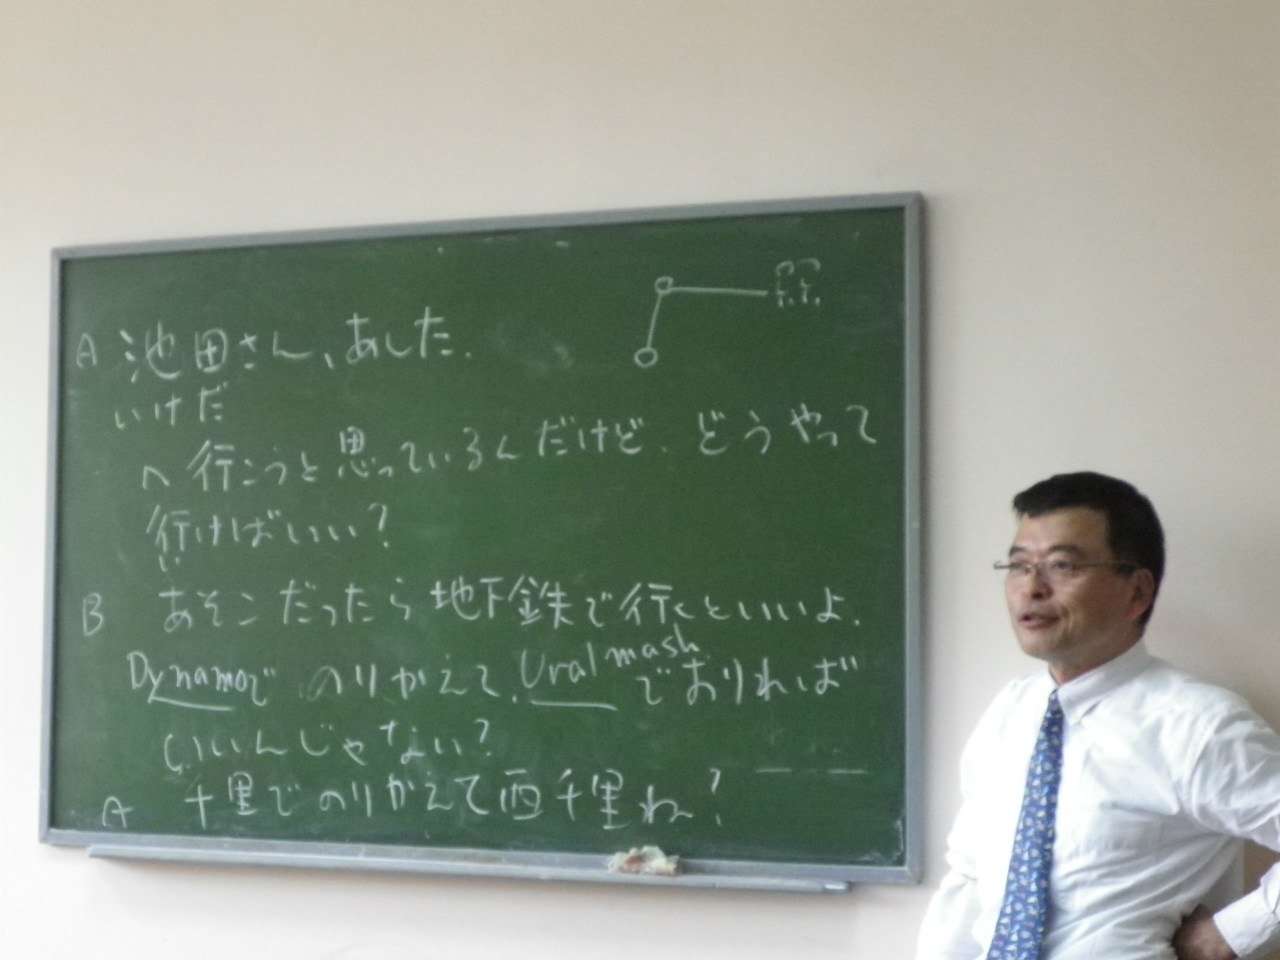 A 池田さん、あした.
いけだ
へ行こうと思っているんだけど、どうやって
行けばいい?
い
B あそこだったら地下鉄で行くといいよ.
Dynamoで のりかえて、Uralmashでおりれば
いいんじゃない?
A 千里でのりかえて西千里ね?